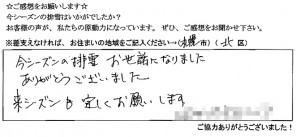 ☆ご感想をお願いします☆
今シーズンの排雪はいかがでしたか?
お客様の声が、私たちの原動力になっています。ぜひ、ご感想をお聞かせ下さい。
※差支えなければ、お住まいの地域をご記入ください→(札幌市)(北区)
今シーズンの排雪 お世話になりました
ありがとうございました
来シーズンも宜しくお願いします
ご協力ありがとうございました!